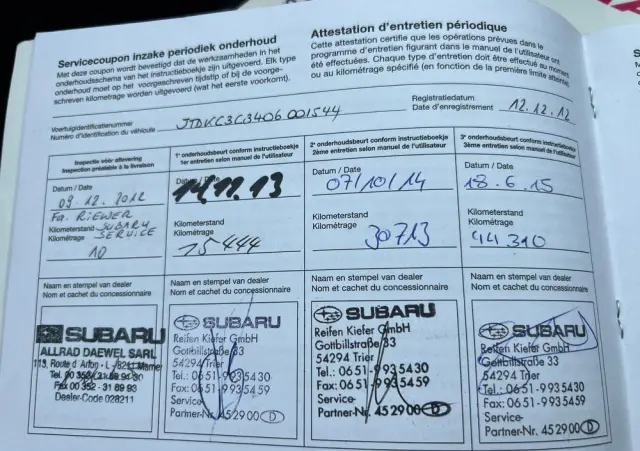 Servicecoupon inzake periodiek onderhoud
Met deze coupon wordt bevestigd dat de werkzaamheden in het
onderhoudsschema van het instructieboekje zijn uitgevoerd. Elk type
onderhoud moet op het voorgeschreven tijdstip of bij de voorge-
schreven kilometrage worden uitgevoerd (wat het eerste voorkomt).
Attestation d'entretien périodique
Cette attestation certifie que les opérations prévues dans le
programme d'entretien figurant dans le manuel de l'utilisateur ont
été effectuées. Chaque type d'entretien doit être effectué au moment
ou au kilométrage spécifié (en fonction de la première limite atteinte).
Voertuigidentificatienummer
Numéro d'identification du véhicule
JTDKC3C3406001544
Registratiedatum
Date d'enregistrement
12.12.12
Inspectie vóór aflevering
Inspection préalable à la livraison
Datum / Date
03.12.2012
Fa. RIEWER
SUBARU
SERVICE
Kilometerstand
Kilométrage
10
Naam en stempel van dealer
Nom et cachet du concessionnaire
SUBARU
ALLRAD DAEWEL SARL
113, Route d' Arlon - L - 8211 Mamer
Tel. 00 352 - 31 89 93 30
Fax 00 352 - 31 89 93
Dealer-Code 028211
1e onderhoudsbeurt conform instructieboekje
1er entretien selon manuel de l'utilisateur
Datum / Date
14.11.13
Kilometerstand
Kilométrage
15444
Naam en stempel van dealer
Nom et cachet du concessionnaire
SUBARU
Reifen Kiefer GmbH
Gottbillstraße 33
54294 Trier
Tel.: 06 51 - 9 93 54 30
Fax: 06 51 - 9 93 54 59
Service-
Partner-Nr. 45 29 00 D
2e onderhoudsbeurt conform instructieboekje
2ème entretien selon manuel de l'utilisateur
Datum / Date
07/10/14
Kilometerstand
Kilométrage
30713
Naam en stempel van dealer
Nom et cachet du concessionnaire
SUBARU
Reifen Kiefer GmbH
Gottbillstraße 33
54294 Trier
Tel.: 06 51 - 9 93 54 30
Fax: 06 51 - 9 93 54 59
Service-
Partner-Nr. 45 29 00 D
3e onderhoudsbeurt conform instructieboekje
3ème entretien selon manuel de l'utilisateur
Datum / Date
18.6.15
Kilometerstand
Kilométrage
44390
Naam en stempel van dealer
Nom et cachet du concessionnaire
SUBARU
Reifen Kiefer GmbH
Gottbillstraße 33
54294 Trier
Tel.: 06 51 - 9 93 54 30
Fax: 06 51 - 9 93 54 59
Service-
Partner-Nr. 45 29 00 D